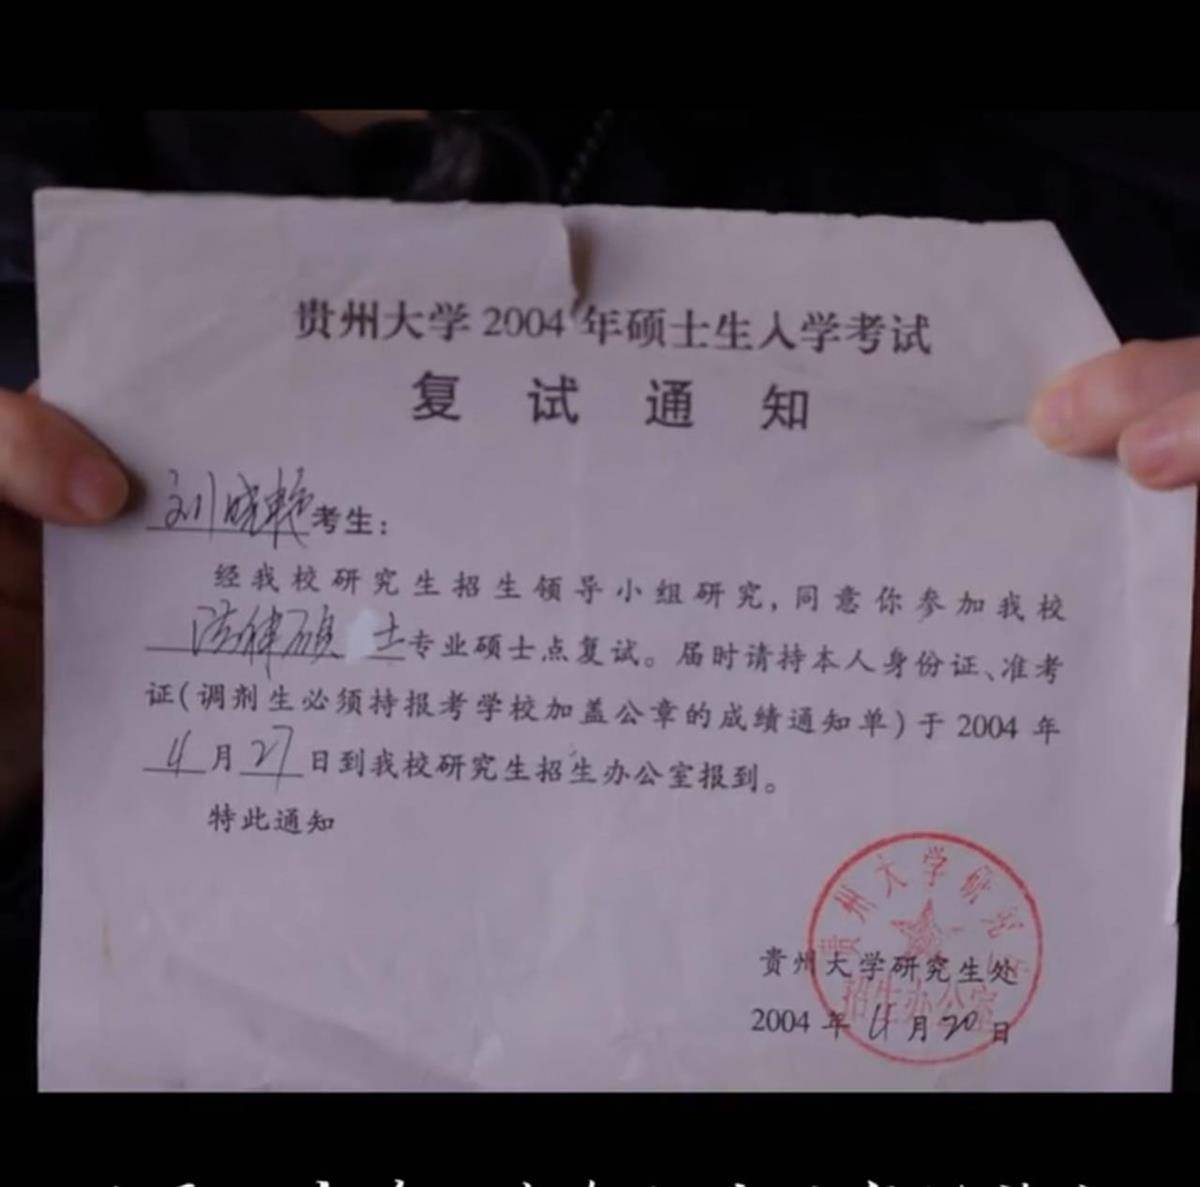 贵州大学2004年硕士生入学考试
复试通知
刘晓艳考生:
经我校研究生招生领导小组研究,同意你参加我校
法律硕士专业硕士点复试。届时请持本人身份证、准考
证(调剂生必须持报考学校加盖公章的成绩通知单)于2004年
4月27日到我校研究生招生办公室报到。
特此通知
贵州大学研究生处
招生办公室
贵州大学研究生处
2004年4月20日